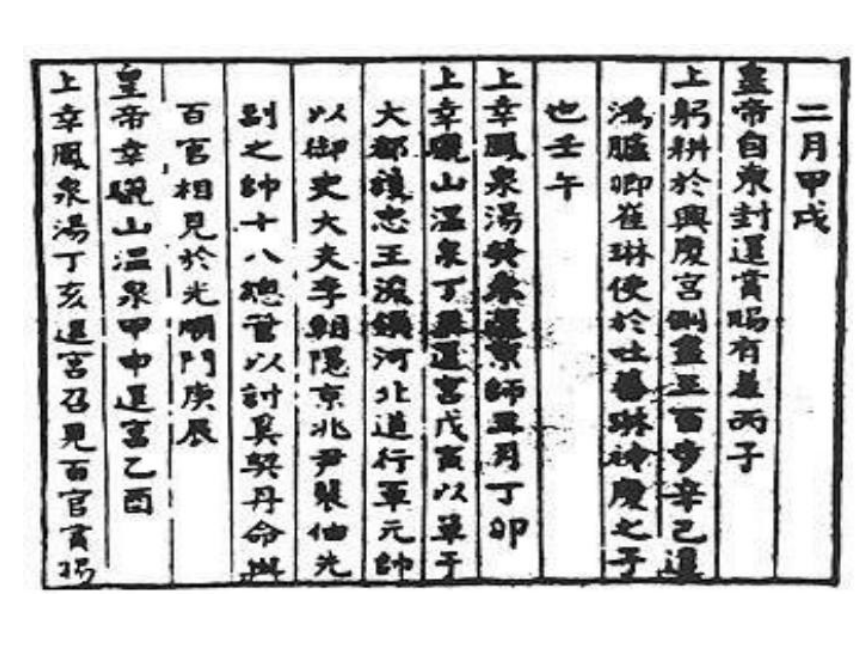 二月甲戌
皇帝自東封還賞賜有差丙子
上躬耕於興慶宮側盡三百步辛己遣
鴻臚卿崔琳使於吐蕃琳神慶之子
也壬午
上幸鳳泉湯癸未還京師三月丁卯
上幸驪山溫泉丁還宮戊寅以單于
大都護忠王浚領河北道行軍元帥
以御史大夫李朝隱京兆尹裴伷先
副之帥十八總管以討奚契丹命與
百官相見於光順門庚辰
皇帝幸驪山溫泉甲申還宮乙酉
上幸鳳泉湯丁亥還宮召見百官賞賜